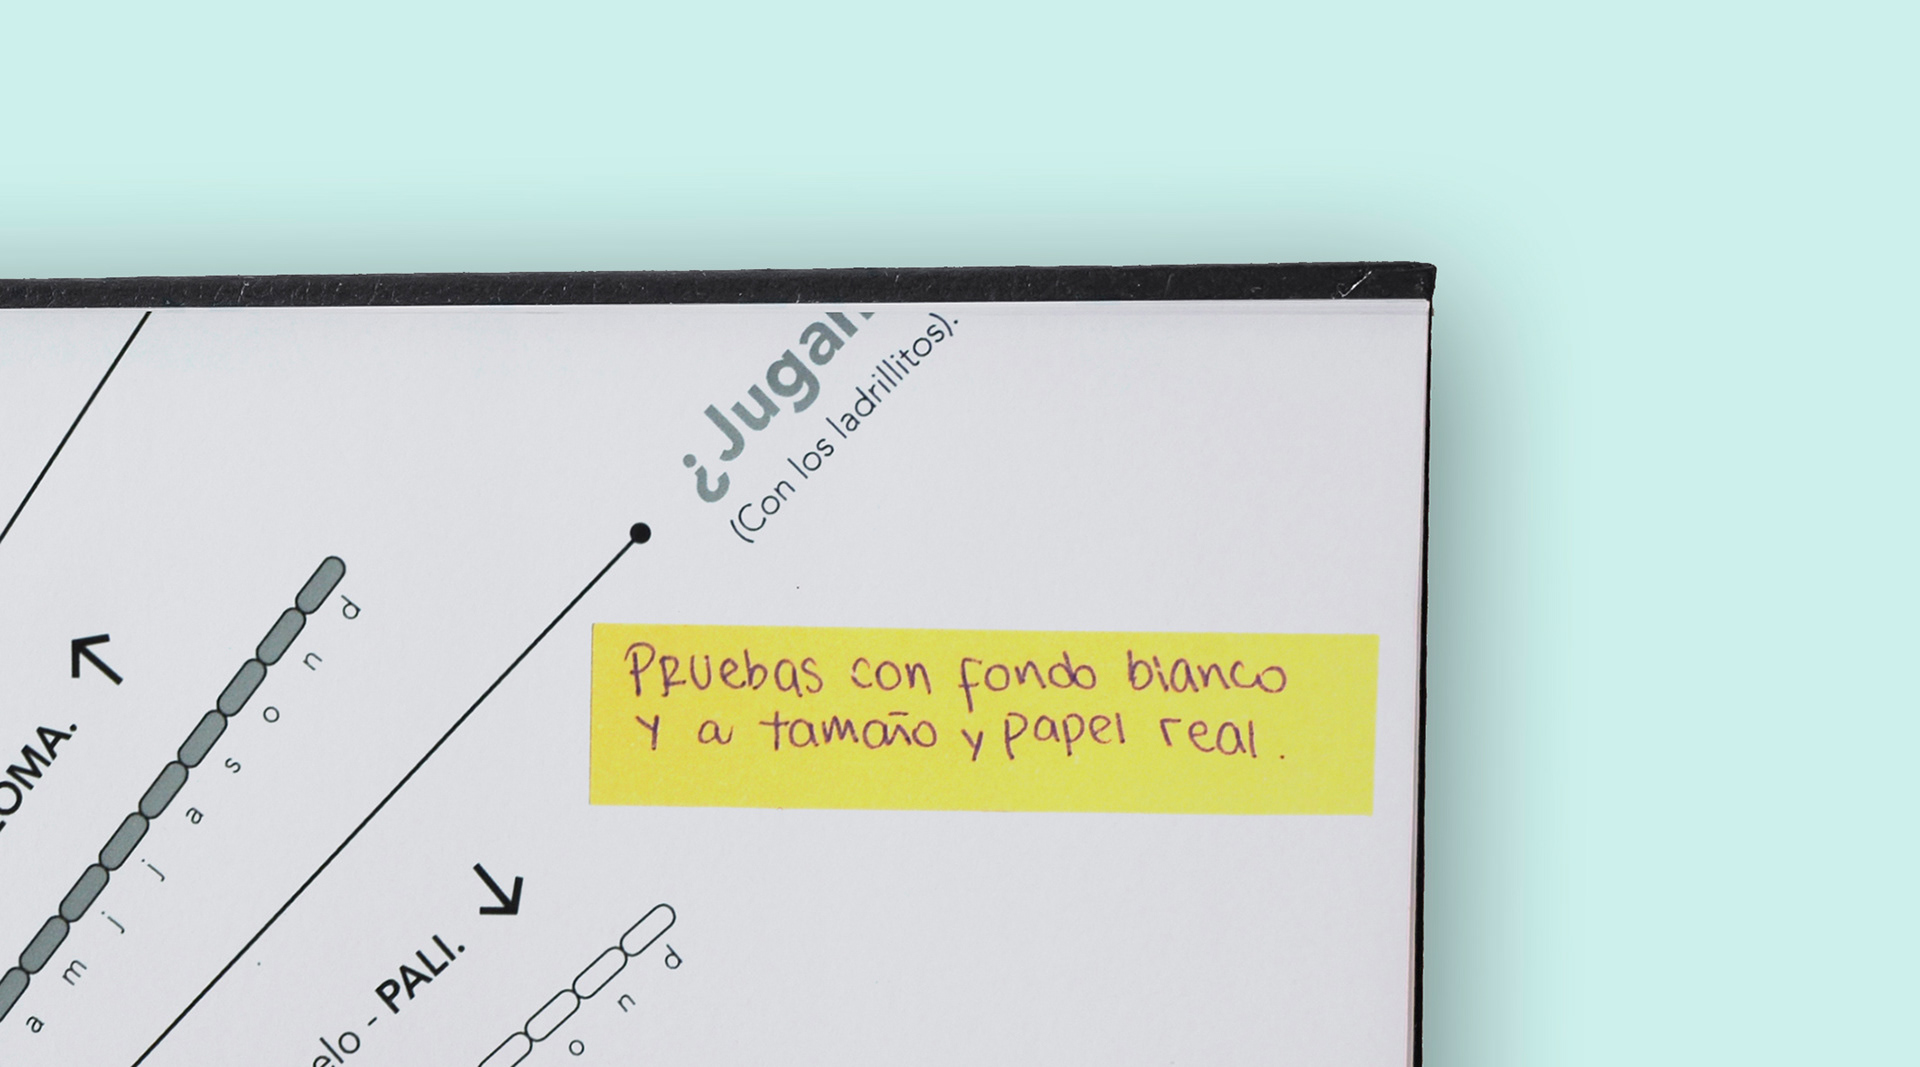 ¿Jugar
(Con los ladrillitos).
d
n
o
s
a
j
j
m
a
OMA.
Pruebas con fondo blanco
y a tamaño y papel real.
elo - PALI.
d
n
o